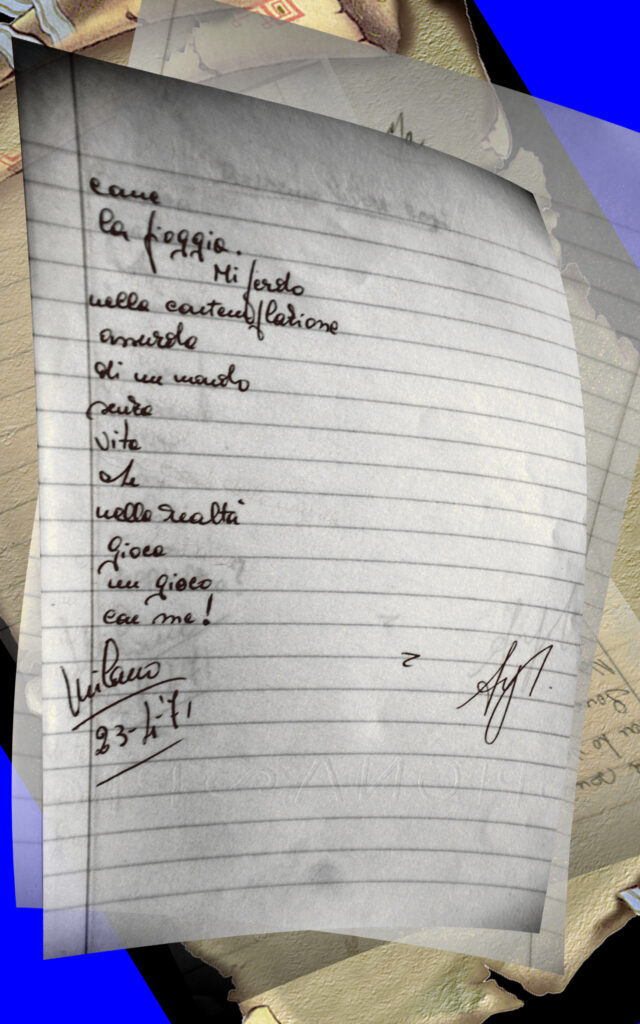 come
la pioggia.
Mi perdo
nella contemplazione
assurda
di un mondo
senza
vita
che
nella realtà
gioca
un gioco
con me!
Milano
23-4-'71